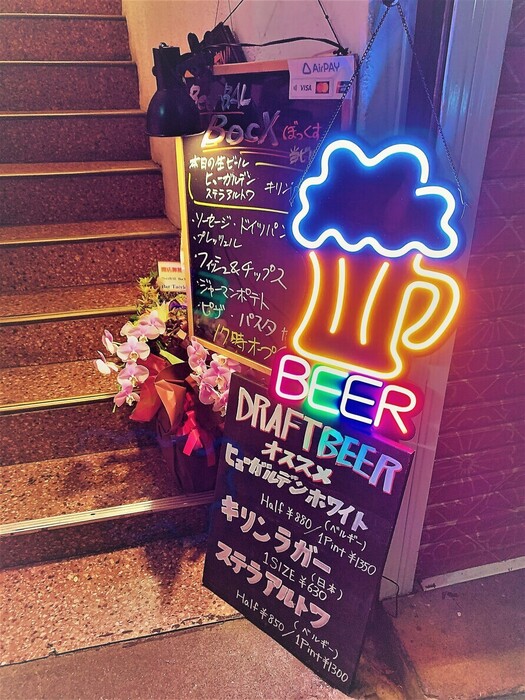 AirPAY
VISA
BocX ぼっくす
本日の生ビール
ヒューガルデン
ステラアルトワ キリン
・ソーセージ・ドイツパン
・プレッツェル
・フィッシュ&チップス
・ジャーマンポテト
・ピザ ・パスタ
17時オープン
BEER
DRAFT BEER
オススメ
ヒューガルデンホワイト
(ベルギー)
Half ¥880/1Pint ¥1350
キリンラガー
(日本)
1SIZE ¥630
ステラアルトワ
(ベルギー)
Half ¥850/1Pint ¥1300